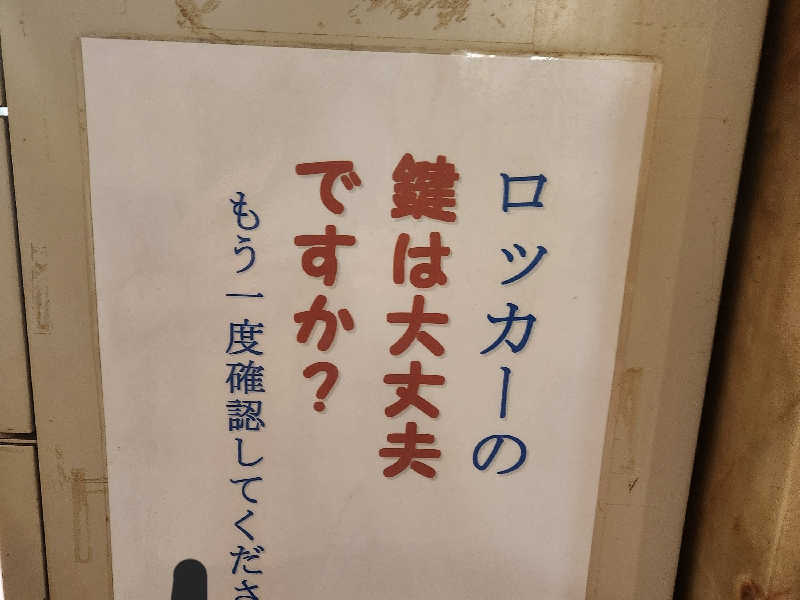 ロッカーの
鍵は大丈夫
ですか?
もう一度確認してくださ